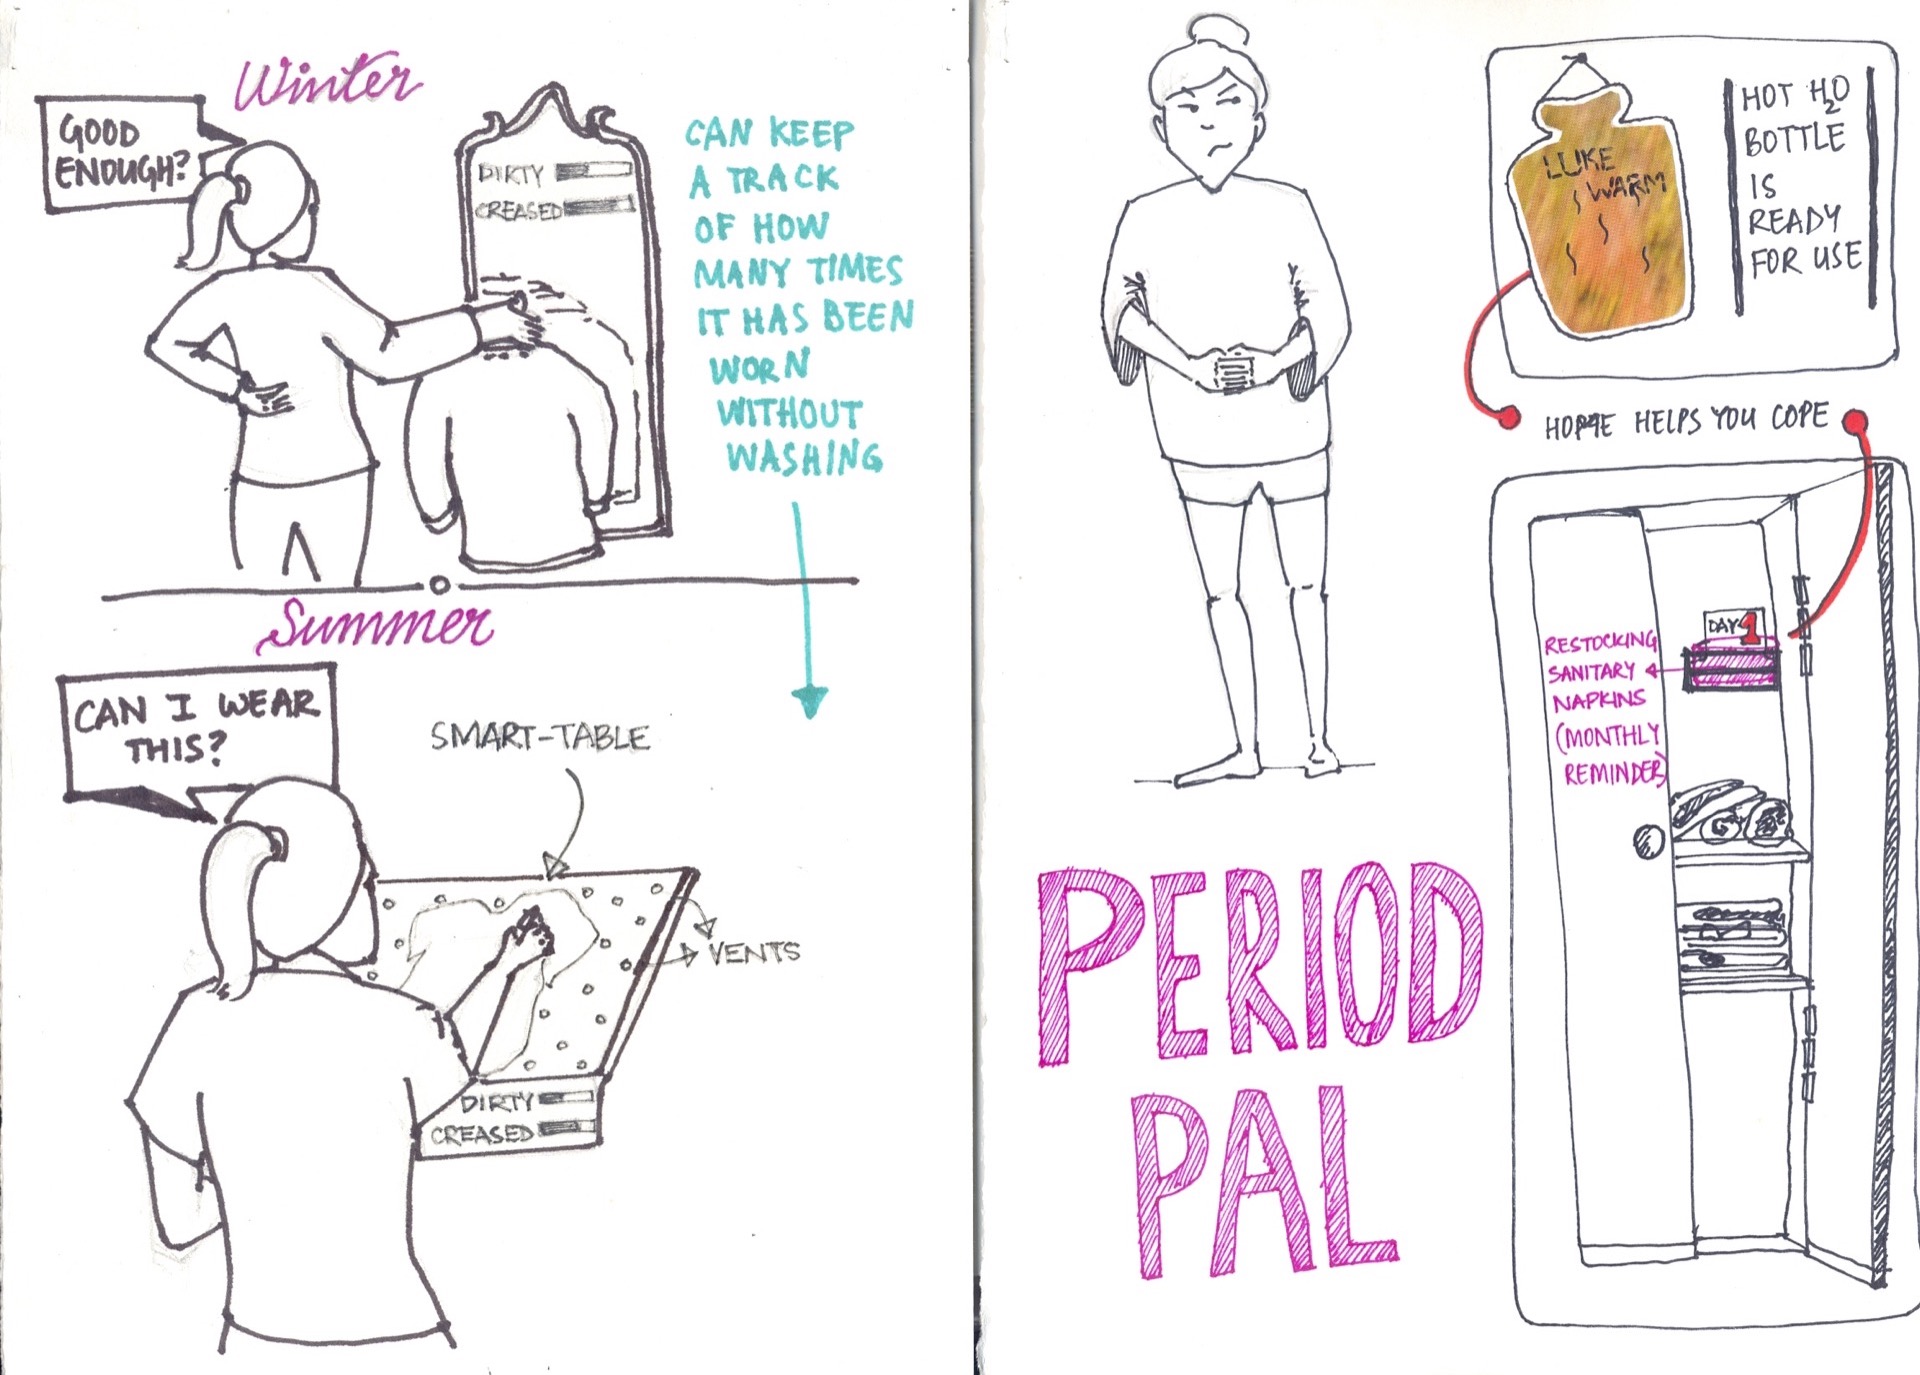 Winter
GOOD
ENOUGH?
DIRTY
CREASED
CAN KEEP
A TRACK
OF HOW
MANY TIMES
IT HAS BEEN
WORN
WITHOUT
WASHING
Summer
CAN I WEAR
THIS?
SMART-TABLE
VENTS
DIRTY
CREASED
LUKE
WARM
HOT H2O
BOTTLE
IS
READY
FOR USE
HOME HELPS YOU COPE
DAY 1
RESTOCKING
SANITARY
NAPKINS
(MONTHLY
REMINDER)
PERIOD
PAL